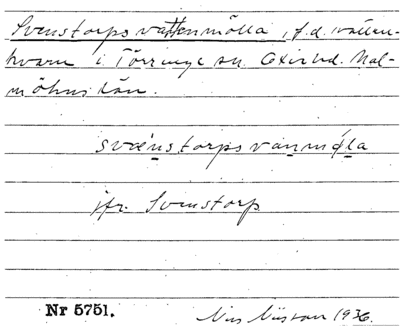 Svenstorps vattenmölla, f.d. vatten-
kvarn i Törringe sn. Oxie hd. Mal-
möhus län.
svænstorps vanmǿla
jfr. Svenstorp
Nr 5751.
Nils 1936.